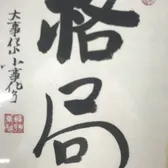 格局
大事化小小事化了